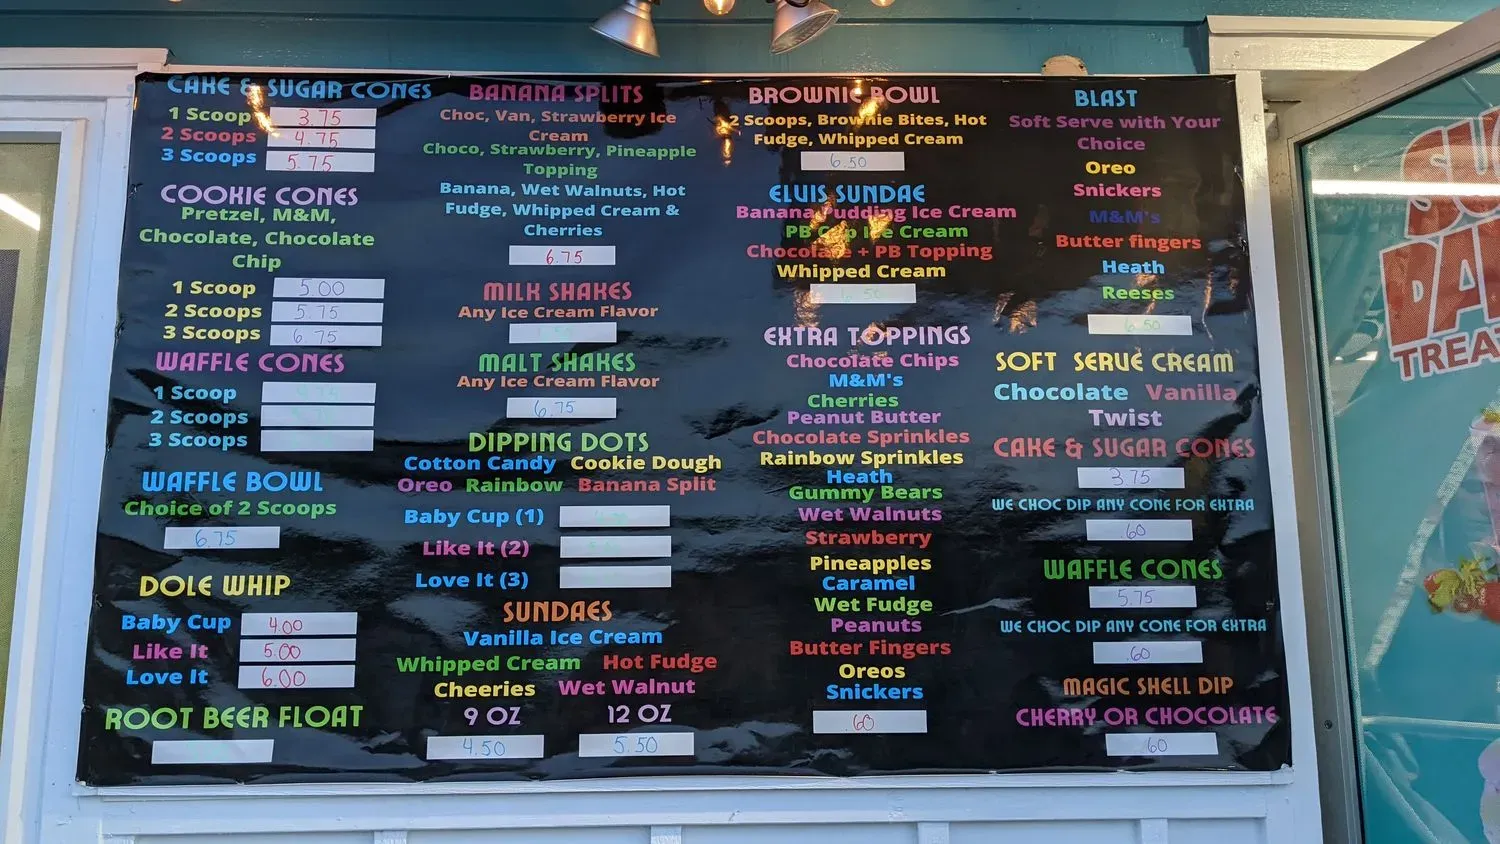 CAKE & SUGAR CONES
1 Scoop 3.75
2 Scoops 4.75
3 Scoops 5.75
COOKIE CONES
Pretzel, M&M,
Chocolate, Chocolate
Chip
1 Scoop 5.00
2 Scoops 5.75
3 Scoops 6.75
WAFFLE CONES
1 Scoop
2 Scoops
3 Scoops
WAFFLE BOWL
Choice of 2 Scoops
6.75
DOLE WHIP
Baby Cup 4.00
Like It 5.00
Love It 6.00
ROOT BEER FLOAT
BANANA SPLITS
Choc, Van, Strawberry Ice
Cream
Choco, Strawberry, Pineapple
Topping
Banana, Wet Walnuts, Hot
Fudge, Whipped Cream &
Cherries
6.75
MILK SHAKES
Any Ice Cream Flavor
MALT SHAKES
Any Ice Cream Flavor
6.75
DIPPING DOTS
Cotton Candy Cookie Dough
Oreo Rainbow Banana Split
Baby Cup (1)
Like It (2)
Love It (3)
SUNDAES
Vanilla Ice Cream
Whipped Cream Hot Fudge
Cheeries Wet Walnut
9 OZ 12 OZ
4.50 5.50
BROWNIE BOWL
2 Scoops, Brownie Bites, Hot
Fudge, Whipped Cream
6.50
ELVIS SUNDAE
Banana Pudding Ice Cream
PB Cup Ice Cream
Chocolate + PB Topping
Whipped Cream
6.50
EXTRA TOPPINGS
Chocolate Chips
M&M's
Cherries
Peanut Butter
Chocolate Sprinkles
Rainbow Sprinkles
Heath
Gummy Bears
Wet Walnuts
Strawberry
Pineapples
Caramel
Wet Fudge
Peanuts
Butter Fingers
Oreos
Snickers
.60
BLAST
Soft Serve with Your
Choice
Oreo
Snickers
M&M's
Butter fingers
Heath
Reeses
6.50
SOFT SERVE CREAM
Chocolate Vanilla
Twist
CAKE & SUGAR CONES
3.75
WE CHOC DIP ANY CONE FOR EXTRA
.60
WAFFLE CONES
5.75
WE CHOC DIP ANY CONE FOR EXTRA
.60
MAGIC SHELL DIP
CHERRY OR CHOCOLATE
.60